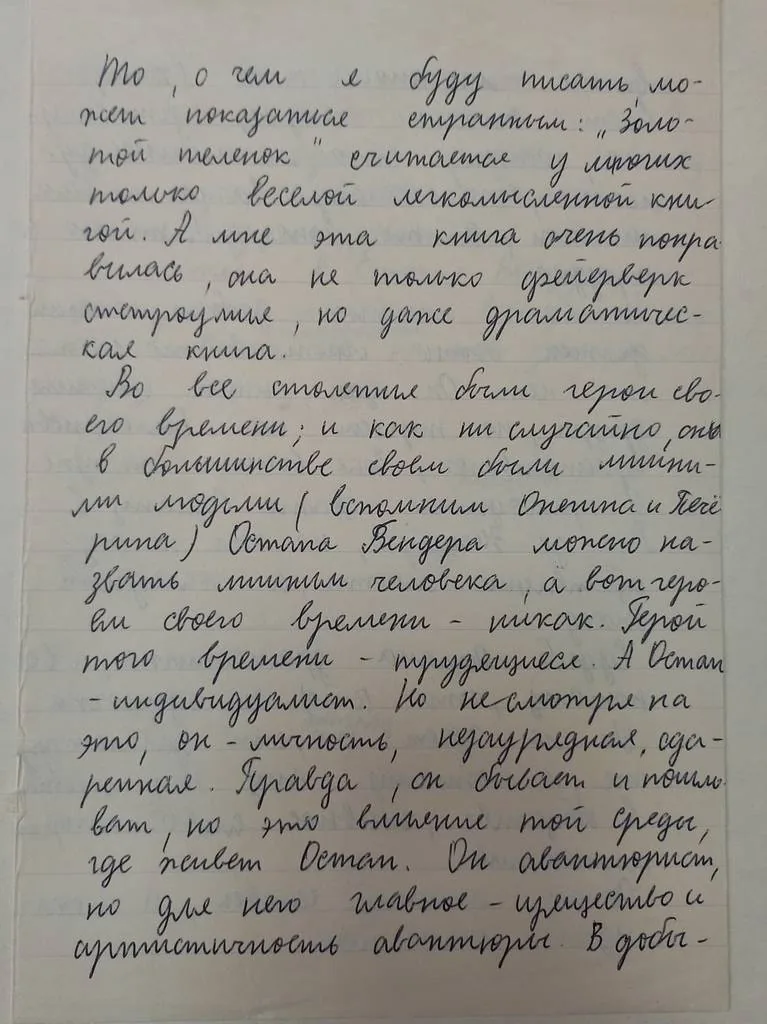 То, о чем я буду писать, мо-
жет показаться странным: „Золо-
той теленок" считается у многих
только веселой легкомысленной кни-
гой. А мне эта книга очень понра-
вилась, она не только фейерверк
остроумия, но даже драматичес-
кая книга.
Во все столетия были герои сво-
его времени; и как ни случайно, они
в большинстве своем были лишни-
ми людьми (вспомним Онегина и Печё
рина) Остапа Бендера можно на-
звать лишним человека, а вот геро-
ем своего времени - никак. Герой
того времени - трудящиеся. А Остап
- индивидуалист. Но несмотря на
это, он - личность, незаурядная, ода-
ренная. Правда, он бывает и пошло-
ват, но это влияние той среды,
где живет Остап. Он авантюрист,
но для него главное - изящество и
артистичность авантюры. В добы-